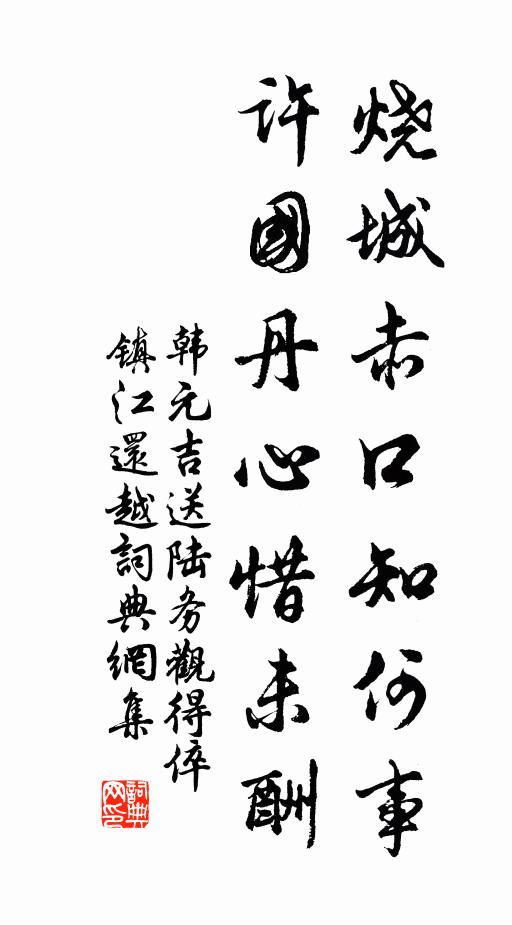 烧城赤口知何事
许國丹心惜未酬
韩元吉送陆务觀得倅
镇江還越詞典網集
詞典
网印